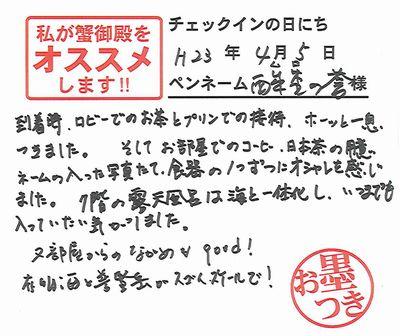 私が蟹御殿を
オススメ
します!!
チェックインの日にち
H23 年 4月 5 日
ペンネーム の誉様
到着時、ロビーでのお茶とプリンでの接待、ホーッと一息
つきました。 そしてお部屋でのコーヒー、日本茶の
ネームの入った写真たて、食器の1つずつにオシャレを感じ
ました。 7階の露天風呂は海と一体化し、いつまでも
入っていたい気がしました。
又部屋からのながめも good!
有明海と普賢岳がスゴイスケールで!
お墨つき